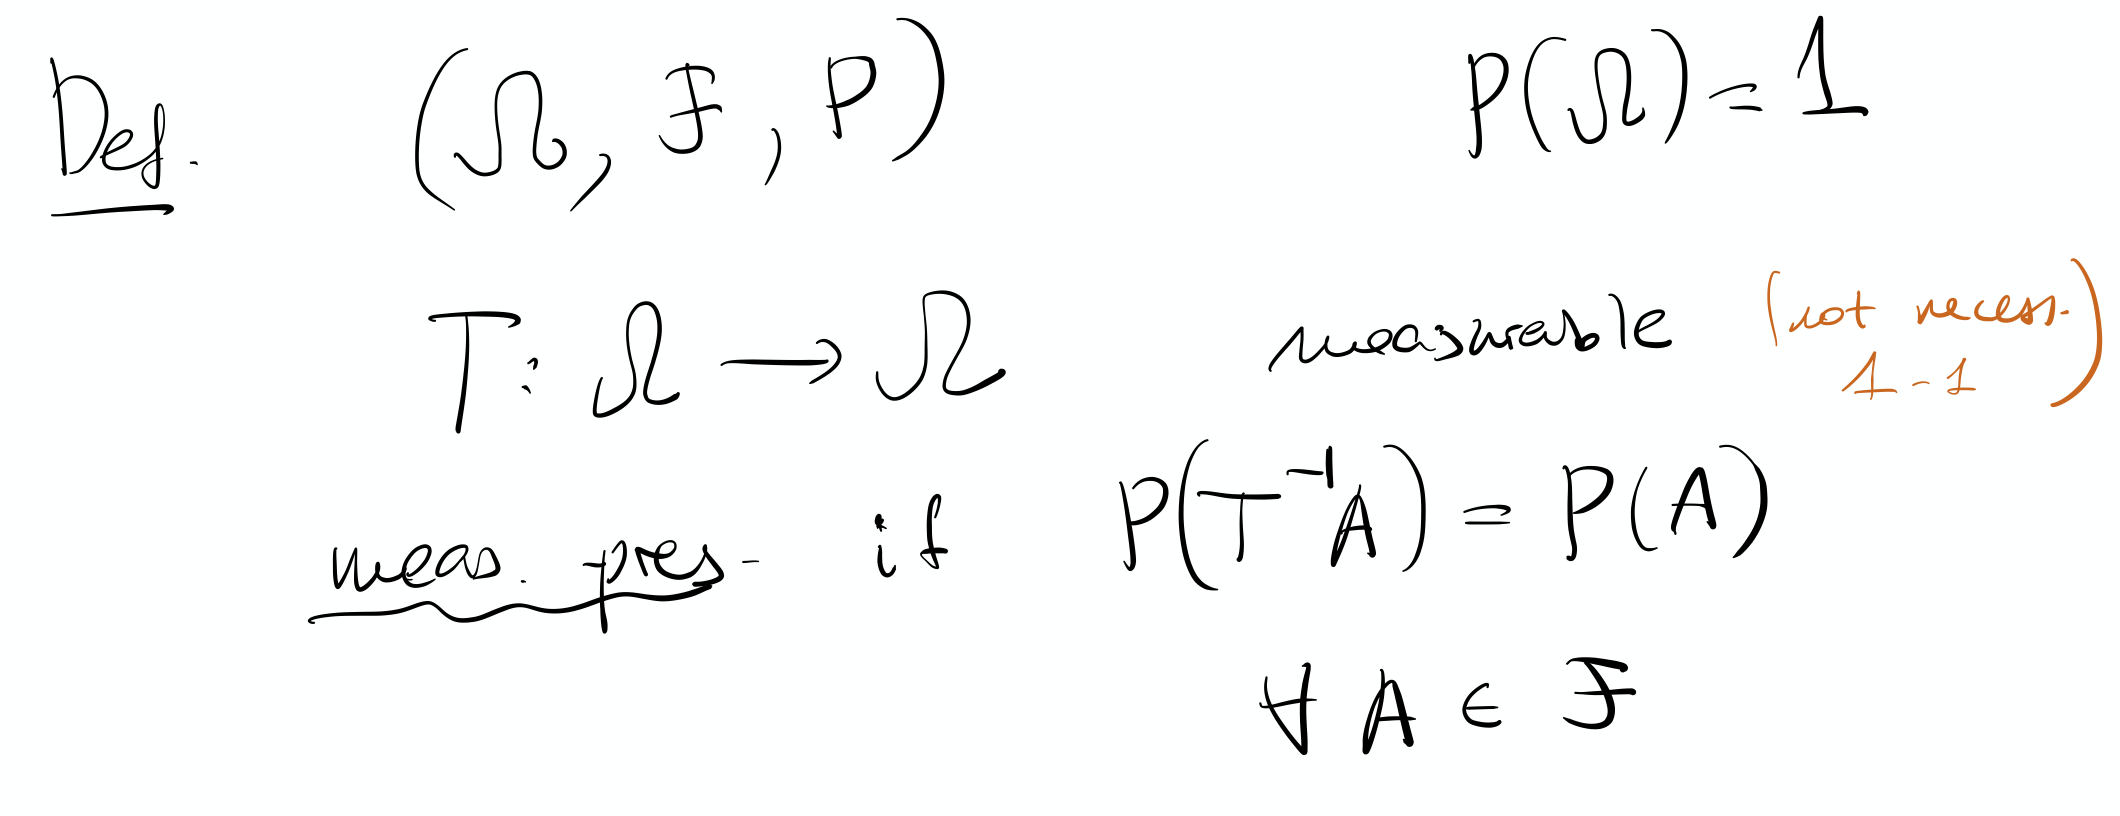 Def. (Ω, ℱ, P) P(Ω) = 1
T: Ω → Ω measurable (not necess. 1-1)
meas. pres. if P(T⁻¹A) = P(A)
∀ A ∈ ℱ